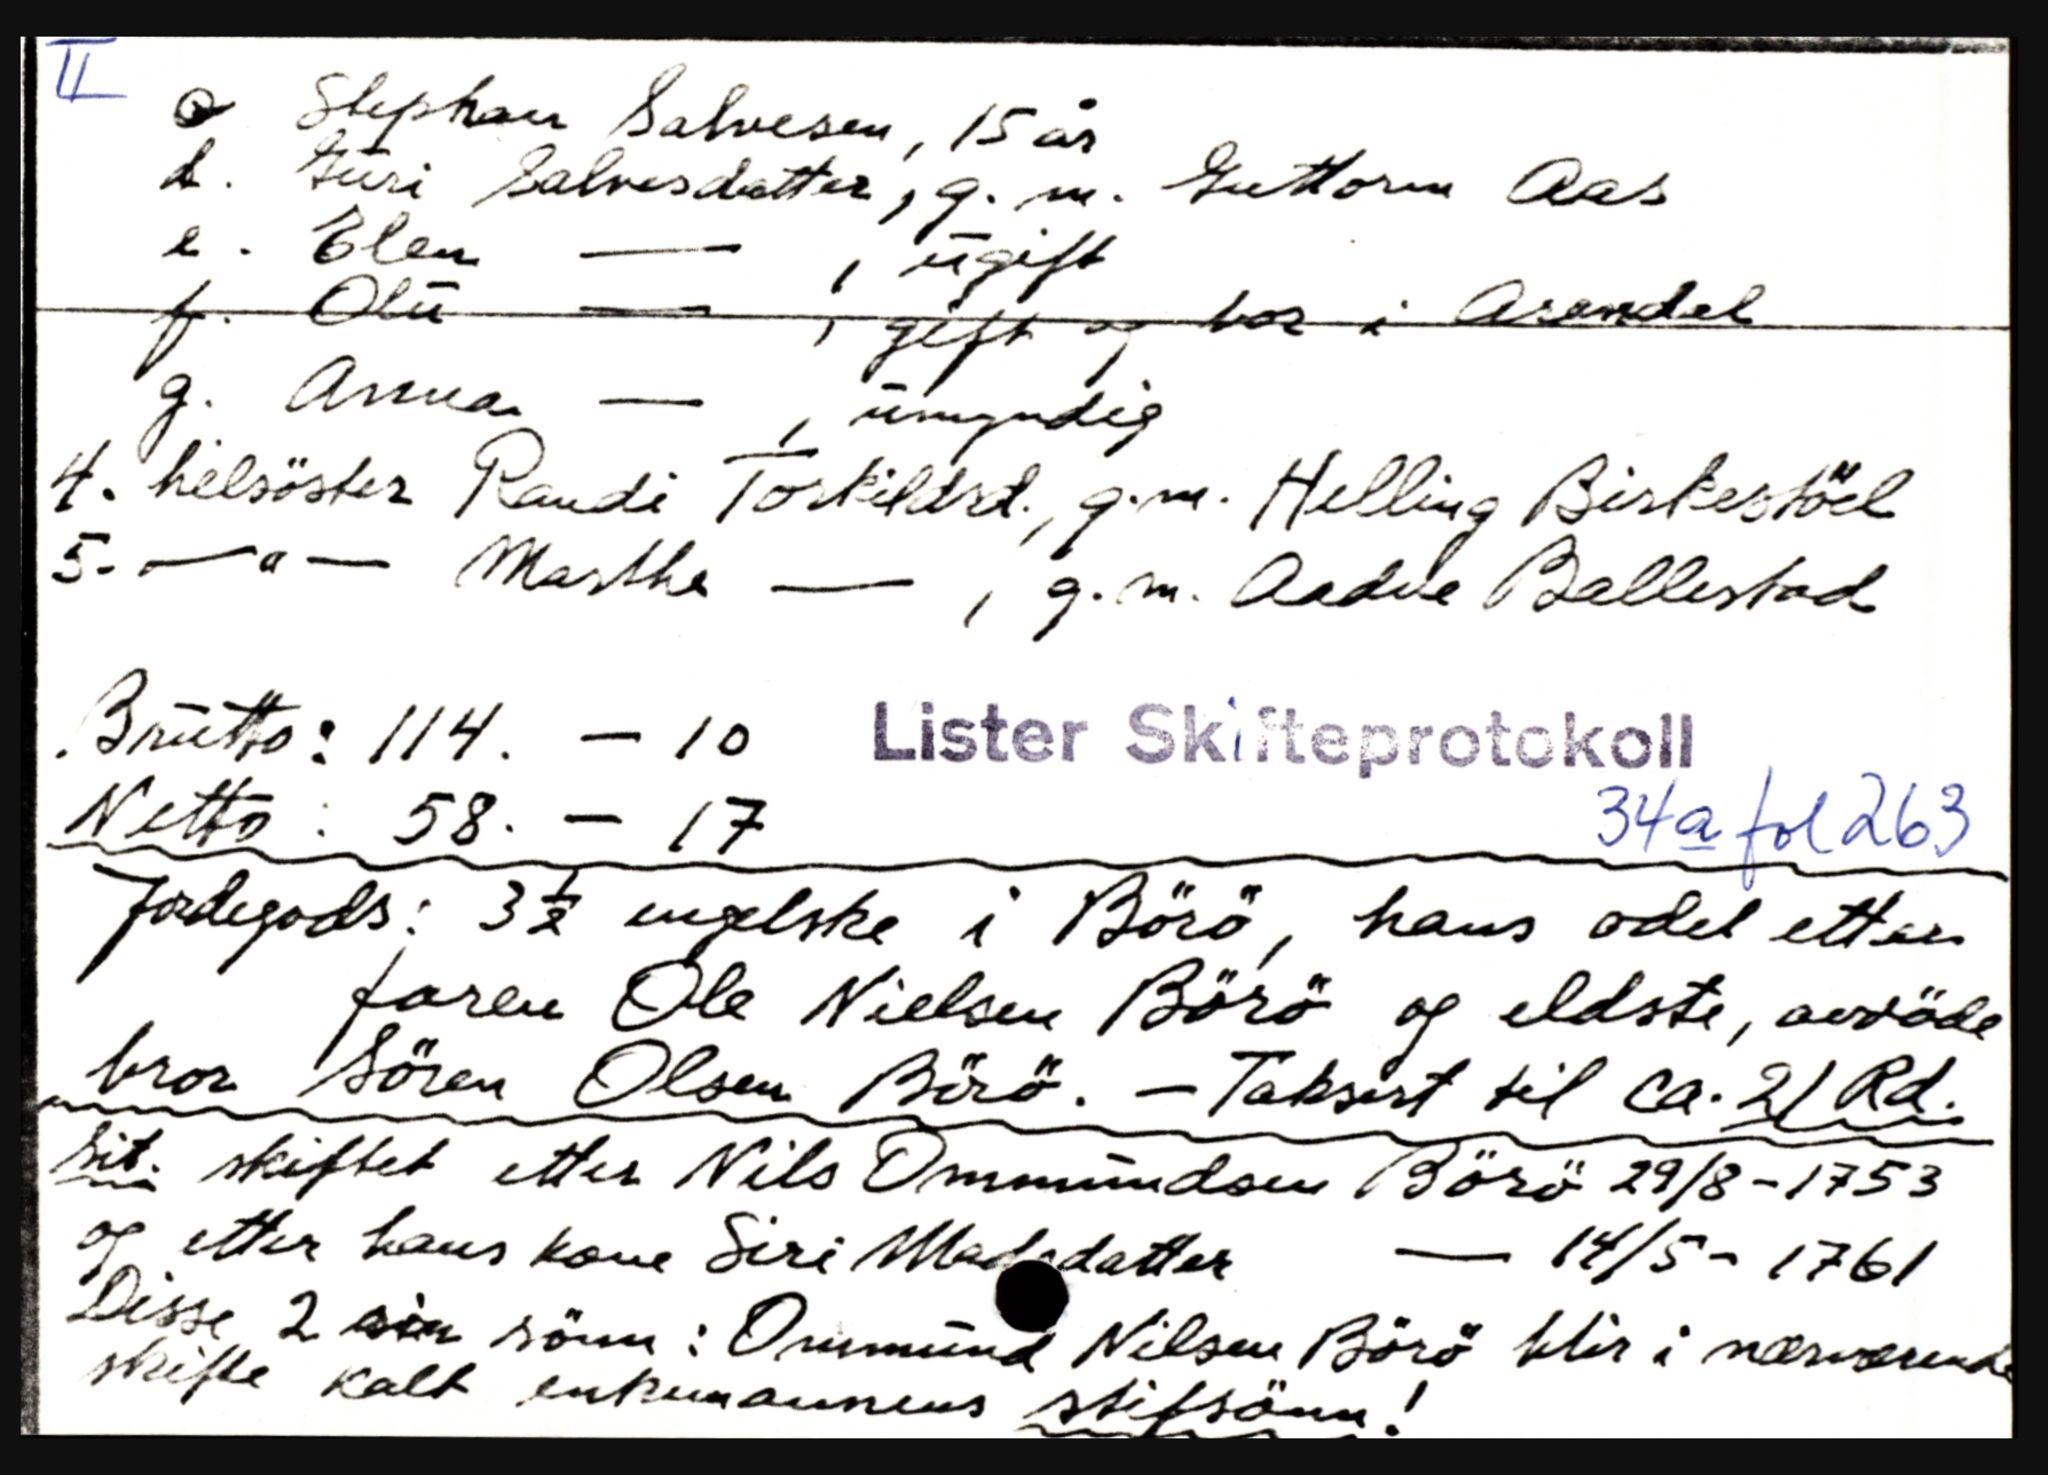 II
c. Stephan Salvesen, 15 år
d. Guri Salvesdatter, g. m. Guttorm Aas
e. Elen — , ugift
f. Olu — , gift og bor i Arendal
g. Anna — , umyndig
4. helsöster Randi Torkildsd., g.m. Helling Birkestöel
5. — " — Marthe — , g. m. Aadne Ballestad
Brutto: 114. — 10
Lister Skifteprotokoll
Netto: 58. — 17
34a fol 263
Jordegods: 3 1/2 engelske i Börö, hans odel etter
faren Ole Nielsen Börö og eldste, avdöde
bror Sören Olsen Börö. — Taksert til ca. 21 Rd.
skiftet etter Nils Ommundsen Börö 29/8 - 1753
og etter hans kone Siri Madsdatter — 14/5 - 1761
Disse 2 sin sönn: Ommund Nilsen Börö blir i nærværende
skifte kalt enkemannens stifsönn!